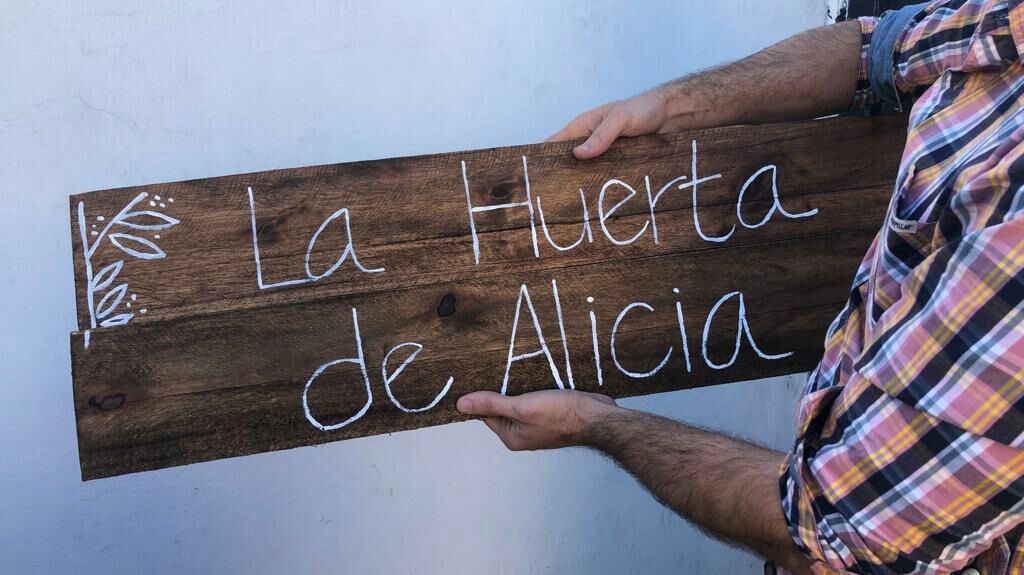 La Huerta
de Alicia